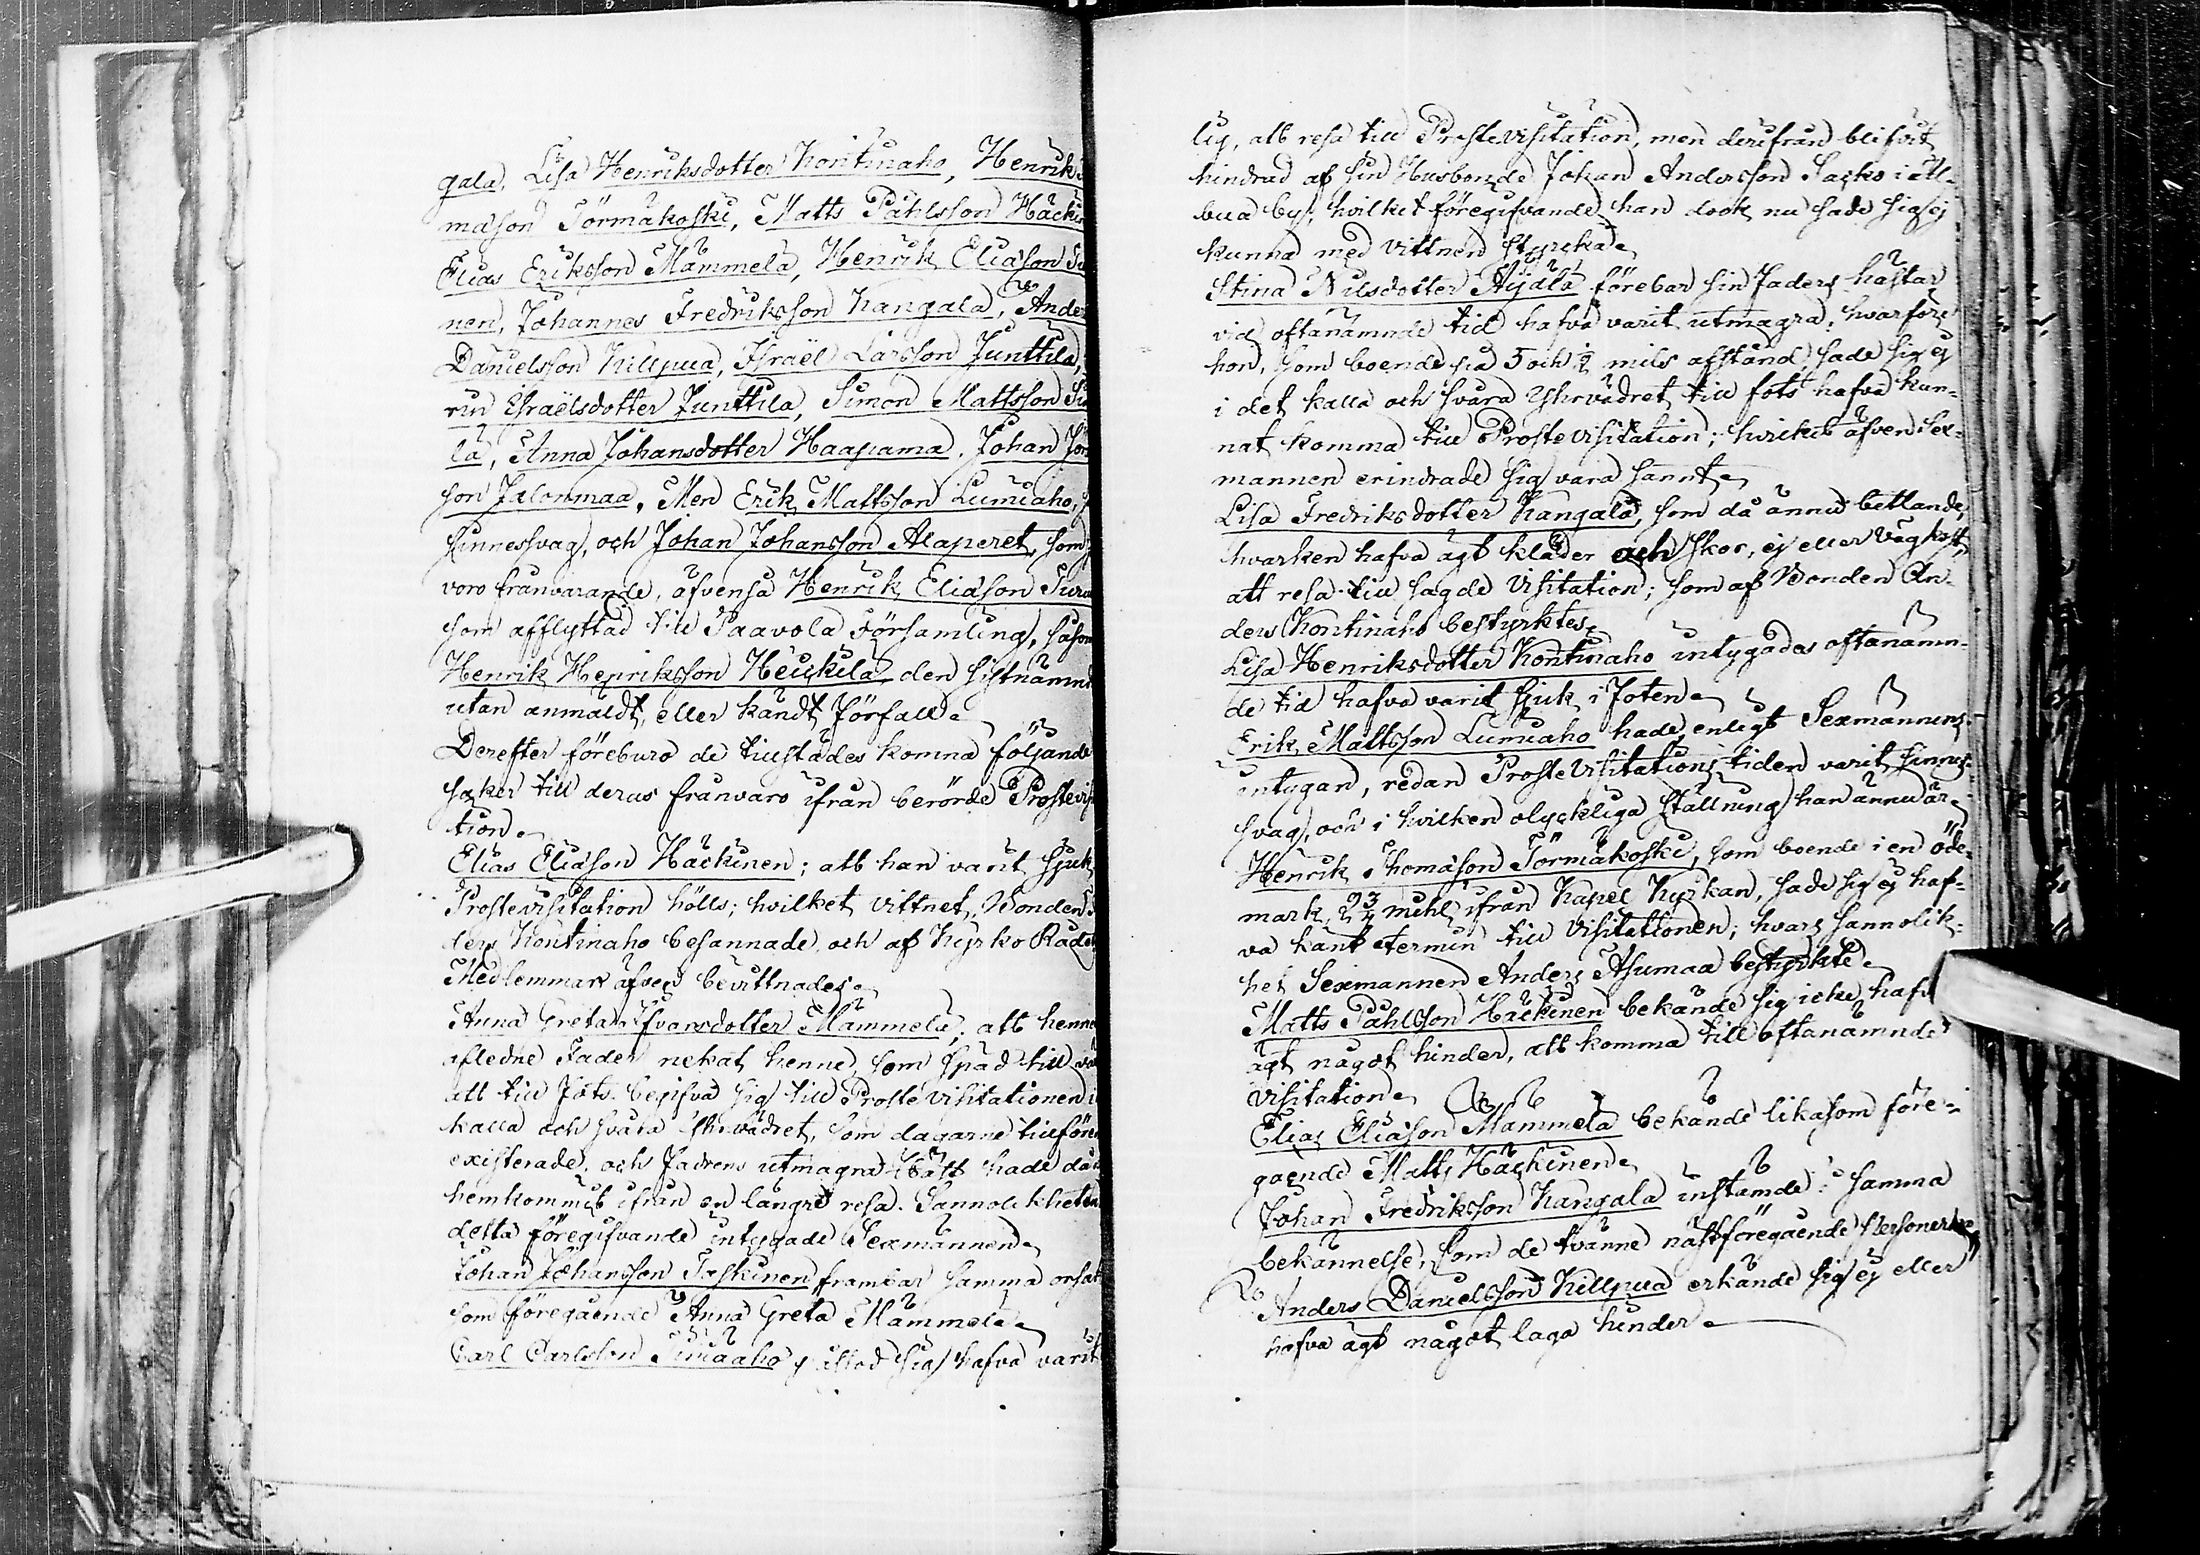 gala, Lisa Henriksdotter Kontinaho, Henrik
mason Törmäkoski, Matts Påhlsson Häcki
Elias Eriksson Mämmelä, Henrik Eliason
nen, Johannes Fredriksson Kangala, Ander
Danielsson Killpua, Israël Larsson Junttila,
rin Israëlsdotter Junttila, Simon Mattsson
lä, Anna Johansdotter Haapiama, Johan
son Jalonmaa, Men Erik Mattsson Lumiaho,
sinnessvag, och Johan Johansson Alaperet, som
voro frånvarande, äfvenså Henrik Eliason
som afflyttad till Paavola Församling, såsom
Henrik Henriksson Heickilä, den sistnämnd
utan anmäldt, eller kändt förfall.
Derefter föreburo de tillstädes komna följande
saker till deras frånvaro ifrån berörde Prostevisi
tion.
Elias Eliason Häckinen; att han varit sjuk
Prostevisitation hölls; hvilket vittnet, Bonden
ders Kontinaho besannade, och af Kyrko Råde
Medlemmar äfven bevittnades.
Anna Greta Ifvarsdotter Mämmelä; att henne
afledne Fader nekat henne, som späd till
att till fots begifva sig till Proste Visitationen i
kalla och svåra Yhrvädret, som dagarne tillföre
existerade, och Fadrens utmagrade häst hade då
hemkommit ifrån en längre resa. Sannolikheten
detta föregifvande intygade Sexmännen.
Johan Johansson Taskinen frambar samma orsak
som föregående Anna Greta Mämmelä.
Carl Carlsson Simaaho påstod sig hafva varit
lig, att resa till Prostevisitation, men derifrån blifvit
hindrad af sin Husbonde Johan Andersson Sasko i All-
bua by; hvilket föregifvande han dock nu sade sig ej
kunna med vittnen styrcka.
Stina Nilsdotter Äijälä förebar sin Faders hästar
vid oftanämnde tid hafva varit utmagra; hvarföre
hon, som boende på 5 och ½ mils afstånd sade sig ej
i det kalla och svåra Yhrvädret till fots hafva kun-
nat komma till Prostevisitation; hvilket äfven Sex-
mannen erindrade sig vara sannt.
Lisa Fredriksdotter Kangala, som då ännu betlande,
hvarken hafva ägt kläder och skor, ej eller vägkost,
att resa till sagde Visitation; som af Bonden An-
ders Kontinaho bestyrktes.
Lisa Henriksdotter Kontinaho intygades oftanämn-
de tid hafva varit sjuk i foten.
Erik Mattsson Lumiaho hade, enligt Sexmannens
intygan, redan Proste Visitations tiden varit sinnes-
svag, och i hvilken olyckliga ställning han ännu är.
Henrik Thomason Törmäkoski, som boende i en öde-
mark, 2¾ mihl ifrån Kapell Kyrkan, sade sig ej haf-
va känt termin till Visitationen; hvars sannolik-
het Sexmannen Anders Asumaa bestyrkte.
Matts Påhlsson Häckinen bekände sig icke hafv
ägt något hinder, att komma till oftanämnde
Visitation.
Elias Eliason Mämmelä bekände likasom före-
gående Matts Häckinen.
Johan Fredriksson Kangala instämde i samma
bekännelse, som de tvänne nästföregående Personer.
Anders Danielsson Killpua erkände sig ej eller
hafva ägt något laga hinder.